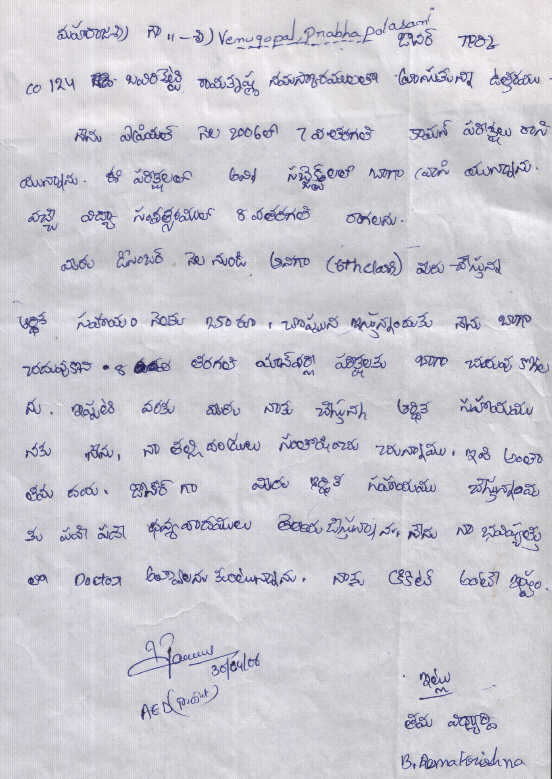 మహారాజశ్రీ గౌ॥ శ్రీ Venugopal, Prabha palasani
డోనర్ గార్కి
CO 124 బవిరిశెట్టి రామకృష్ణ నమస్కారములతో వ్రాయుచున్న ఉత్తరము -
నేను ఏప్రియల్ నెల 2006లో 7 వ తరగతి కామన్ పరీక్షలు రాసి
యున్నాను. ఈ పరీక్షలలో అన్ని సబ్జెక్ట్‌లలో బాగా వ్రాసి యున్నాను.
వచ్చే విద్యా సంవత్సరములో 8 వ తరగతి రాగలను.
మీరు డిసెంబర్ నెల నుండి అనగా (6th class) మీరు చేస్తున్న
ఆర్థిక సహాయం నెలకు రూ, చొప్పున ఇస్తున్నందుకు నేను బాగా
చదువుకొని 8 తరగతి పరీక్షలకు బాగా చదువు కోగల
ను. ఇప్పటి వరకు మీరు నాకు చేస్తున్న ఆర్థిక సహాయము
నకు నేను, నా తల్లి దండ్రులు సంతోషించు చున్నాము. ఇది అంతా
తమ దయ. డోనర్ గా మీరు ఆర్థిక సహాయము చేస్తున్నందు
కు పదే పదే ధన్యవాదములు తెలియ చేస్తున్నాను. నేను నా భవిష్యత్తు
లో Doctor అవ్వాలను కుంటున్నాను. నాకు క్రికెట్ అంటే ఇష్టం.
30/04/06
AEO
ఇట్లు
తమ విద్యార్థి
B. Ramakrishna